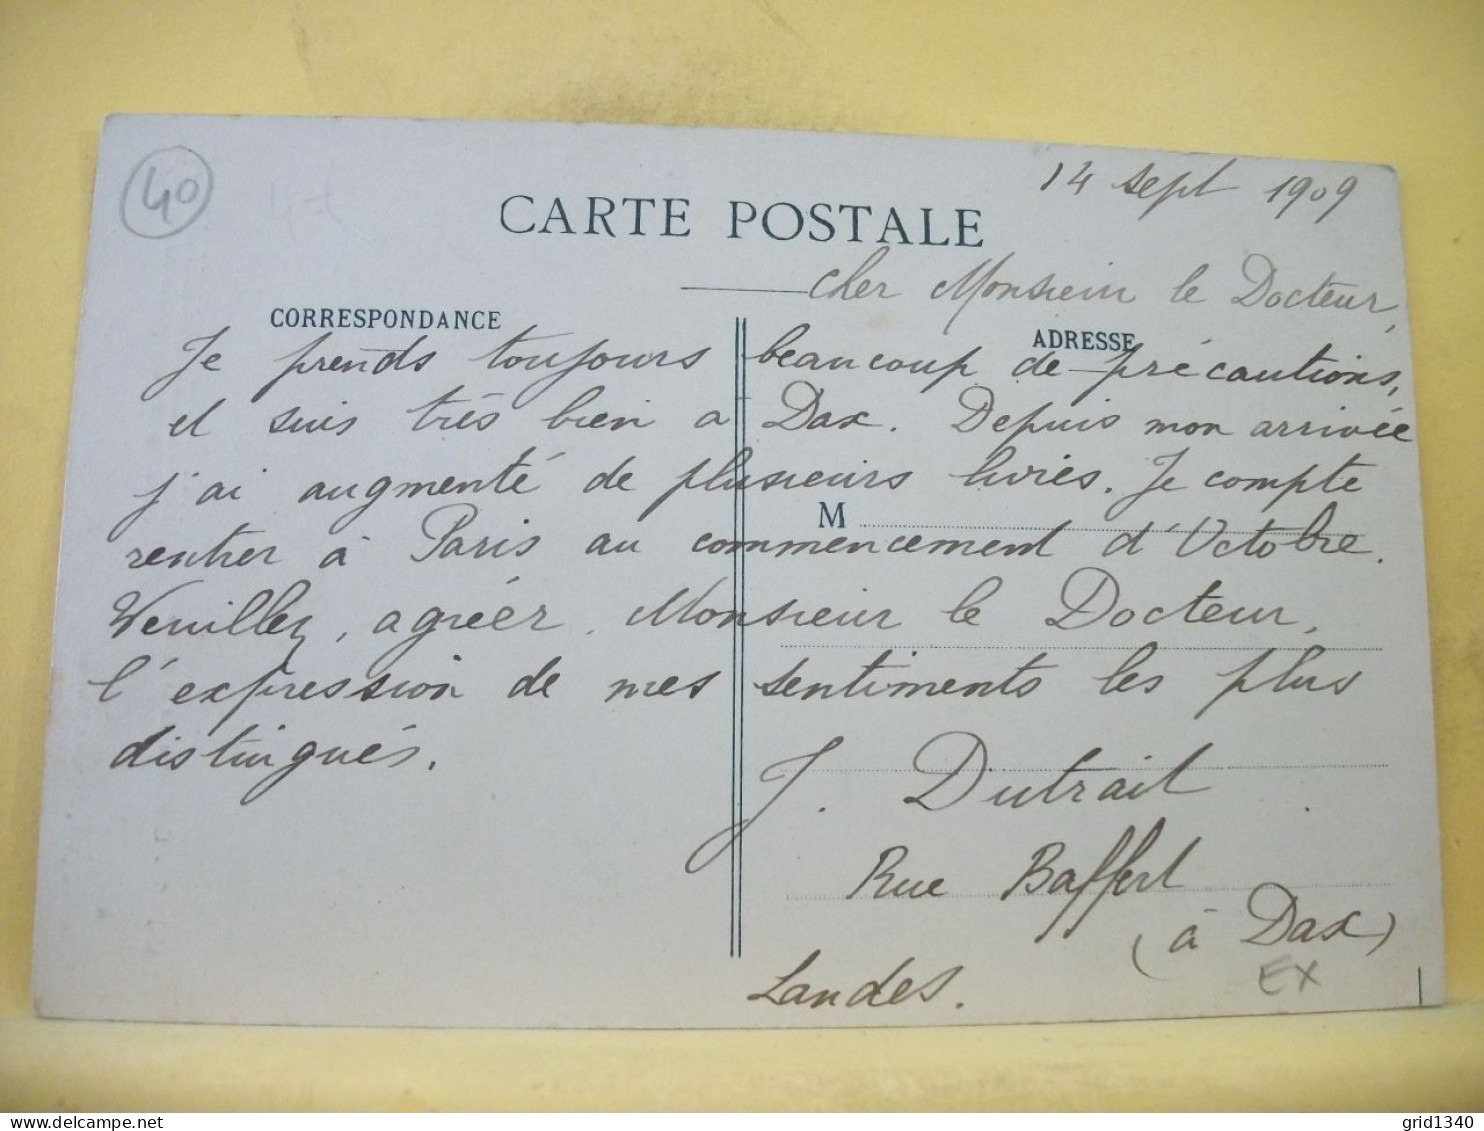 40
14 sept 1909
CARTE POSTALE
Cher Monsieur le Docteur,
CORRESPONDANCE
ADRESSE
Je prends toujours beaucoup de précautions,
et suis très bien à Dax. Depuis mon arrivée
j'ai augmenté de plusieurs livres. Je compte
M
rentrer à Paris au commencement d'Octobre.
Veuillez, agréer, Monsieur le Docteur,
l'expression de mes sentiments les plus
distingués.
J. Dutrait
Rue Baffert
(à Dax)
EX
Landes.
delcampe.net
grid1340